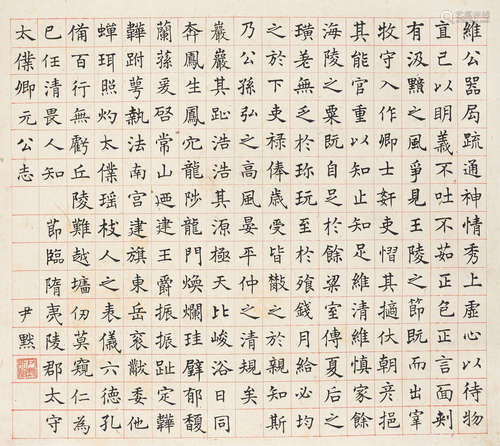 維公器局疏通神情秀上虛心以待物
直己以明義不吐不茹正色正言面刺
有汲黯之風爭見王陵之節既而出宰
牧守入作卿士奸吏慴其擿伏朝旁挹
其能官重以知止知足維清維慎家餘
海陵之粟既自足於餘梁室傳夏后之
璜差無乏於珎玩至於飱錢月給必均
之於下吏祿俸歲受皆散之於親知斯
乃公孫弘之高風晏平仲之清規矣
巖巖其趾浩浩其源極天比峻浴日同
奔鳳生鳳穴龍陟龍門煥爛珪璧郁馥
蘭蓀爰啓常山迺建王爵振振趾定韡
韡跗萼執法南宮建旗東岳袞黻委他
蟬珥照灼太僕瑶枝人之表儀六德孔
備百行無虧丘陵難越墻仞莫窺仁為
己任清畏人知 節臨隋夷陵郡太守
太僕卿元公志 尹默